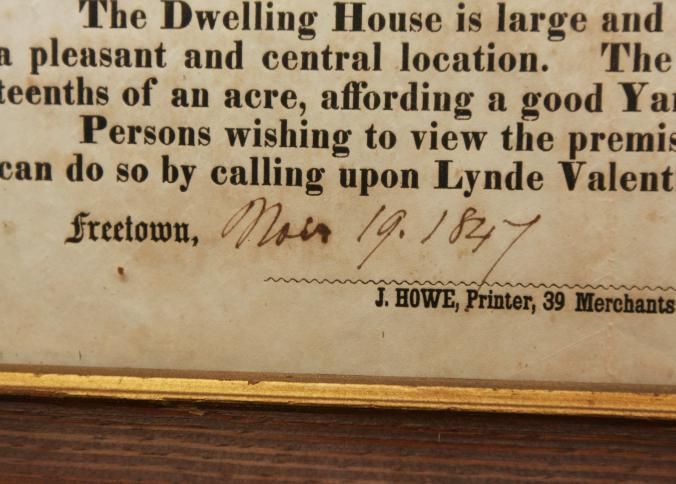 The Dwelling House is large and
a pleasant and central location. The
teenths of an acre, affording a good Yar
Persons wishing to view the premis
can do so by calling upon Lynde Valent
Freetown, Nov 19. 1847
J. HOWE, Printer, 39 Merchants